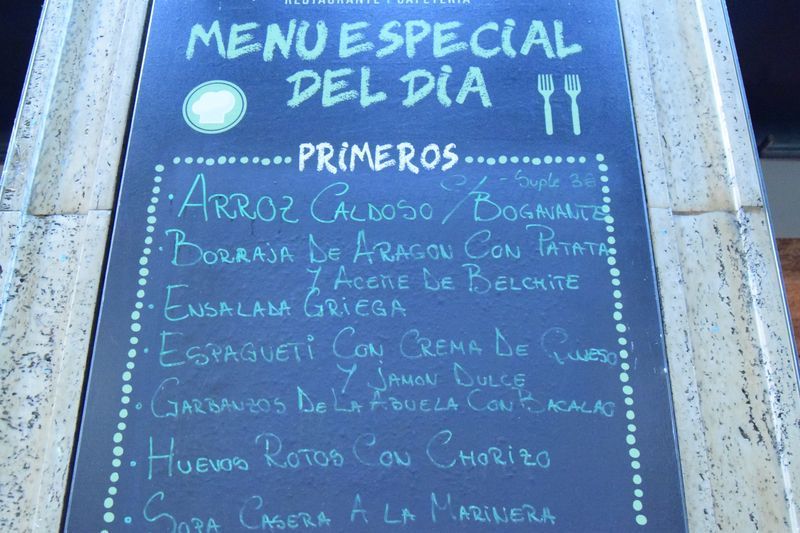 RESTAURANTE Y CAFETERÍA
MENU ESPECIAL
DEL DIA
PRIMEROS
- Suple 3€
· ARROZ CALDOSO C/ BOGAVANTE
· BORRAJA DE ARAGON CON PATATA
Y ACEITE DE BELCHITE
· ENSALADA GRIEGA
· ESPAGUETI CON CREMA DE QUESO
Y JAMON DULCE
· GARBANZOS DE LA ABUELA CON BACALAO
· HUEVOS ROTOS CON CHORIZO
· SOPA CASERA A LA MARINERA